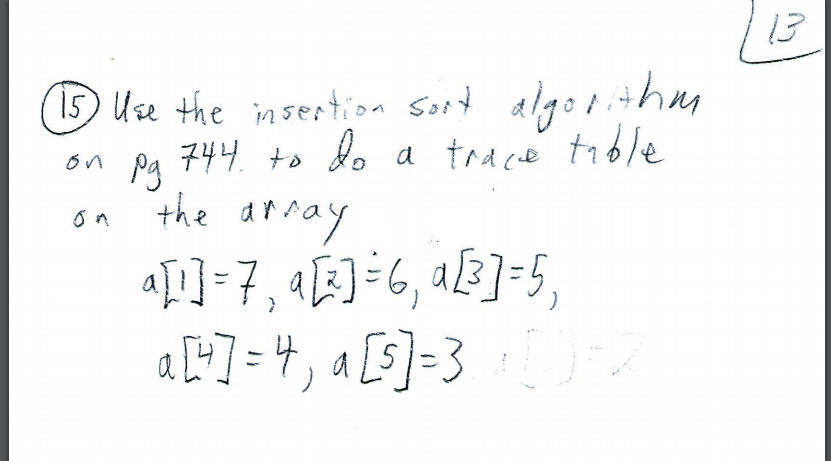 13
15 Use the insertion sort algorithm
on pg 744. to do a trace table
on the array
a[1]=7, a[2]=6, a[3]=5,
a[4]=4, a[5]=3